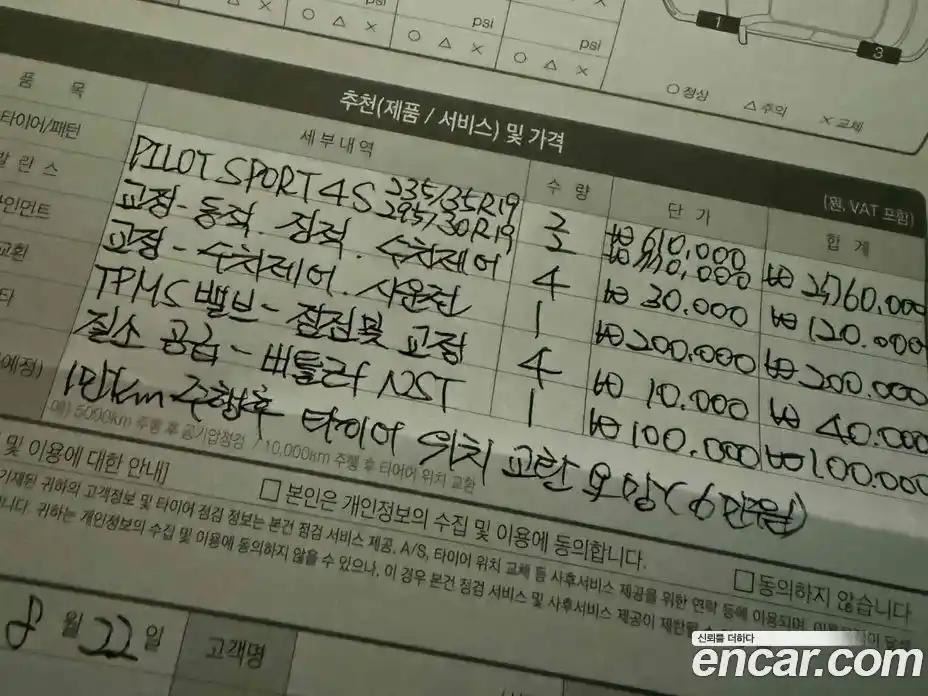 psi
psi
psi
○ △ ×
○ △ ×
○ △ ×
1
3
○정상 △주의 ×교체
추천(제품 / 서비스) 및 가격
(원, VAT 포함)
품 목 세부내역 수 량 단 가 합 계
타이어/패턴 PILOT SPORT 4S 235/35R19 2 ₩610,000
295/30R19 2 ₩ ₩2,760,000
교정-동적. 정적. 수치제어 4 ₩30.000 ₩120.000
교정-수치제어. 시운전 1 ₩200,000 ₩200.000
TPMS 밸브- 점검 및 교정 4 ₩10.000 ₩40.000
질소 공급- 버틀러 NST 1 ₩100.000 ₩100.000
1만km 주행후 타이어 위치 교환 요망 (6만
예) 5000km 주행 후 공기압점검 / 10,000km 주행 후 타이어 위치 교환
및 이용에 대한 안내]
□ 본인은 개인정보의 수집 및 이용에 동의합니다.
□ 동의하지 않습니다
기재된 귀하의 고객정보 및 타이어 점검 정보는 본건 점검 서비스 제공, A/S, 타이어 위치 교체 등 사후서비스 제공을 위한 연락 등에 이용되며,
니다. 귀하는 개인정보의 수집 및 이용에 동의하지 않을 수 있으나, 이 경우 본건 점검 서비스 및 사후서비스 제공이 제한될
8 월 22 일 고객명
신뢰를 더하다
encar.com